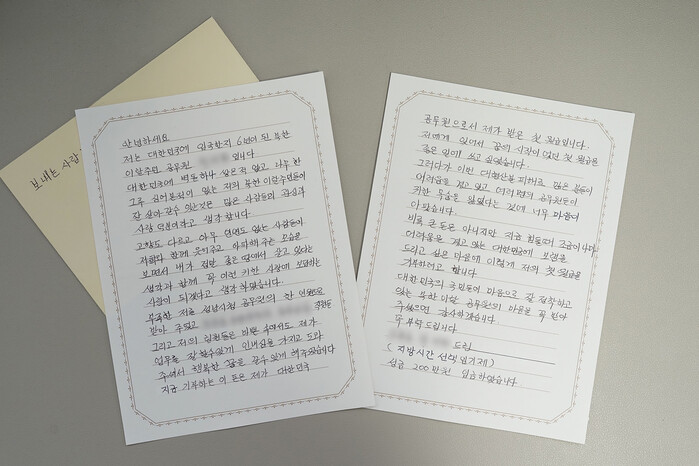 보내는 사람
안녕하세요
저는 대한민국에 입국한지 6년이 된 북한
이탈주민 공무원 입니다
대한민국에 벽돌하나 쌓은적 없고 나무 한
그루 심어본적이 없는 저희 북한 이탈주민들이
잘 살아 갈수 있는것은 많은 사람들의 관심과
사랑 덕분이라고 생각 합니다.
고향도 다르고 아무 연고도 없는 사람들이
저희와 함께 웃어주고 아파해 주는 모습을
보면서 내가 정말 좋은 땅에서 살고 있다는
생각과 함께 꼭 이런 귀한 사랑에 보답하는
사람이 되겠다고 생각 하였습니다.
부족한 저를 성남시청 공무원의 한 일원으로
받아 주었고
그리고 저의 팀원들은 바쁜 속에서도 제가
업무를 잘 할수있게 인내심을 가지고 도와
주셔서 행복한 꿈을 꿀수 있게 해주었습니다
지금 기부하는 이 돈은 제가 대한민국
공무원으로서 제가 받은 첫 월급입니다.
저에게 있어서 꿈의 시작이 었던 첫 월급을
좋은 일에 쓰고 싶었습니다.
그러다가 이번 대형산불 피해로 많은 분들이
어려움을 겪고 있고 여러명의 공무원들이
귀한 목숨을 잃었다는 것에 너무 마음이
아팠습니다.
비록 큰 돈은 아니지만 지금 힘들때 조금이나마
어려움을 겪고 있는 대한민국에 보탬을
드리고 싶은 마음에 이렇게 저의 첫 월급을
기부하려고 합니다.
대한민국의 국민들이 마음으로 잘 정착하고
있는 북한 이탈 공무원의 마음을 꼭 받아
주셨으면 감사하겠습니다.
꼭 부탁드립니다.
드림
(지방시간 선택 임기제)
성금 200만원 입금하였습니다.